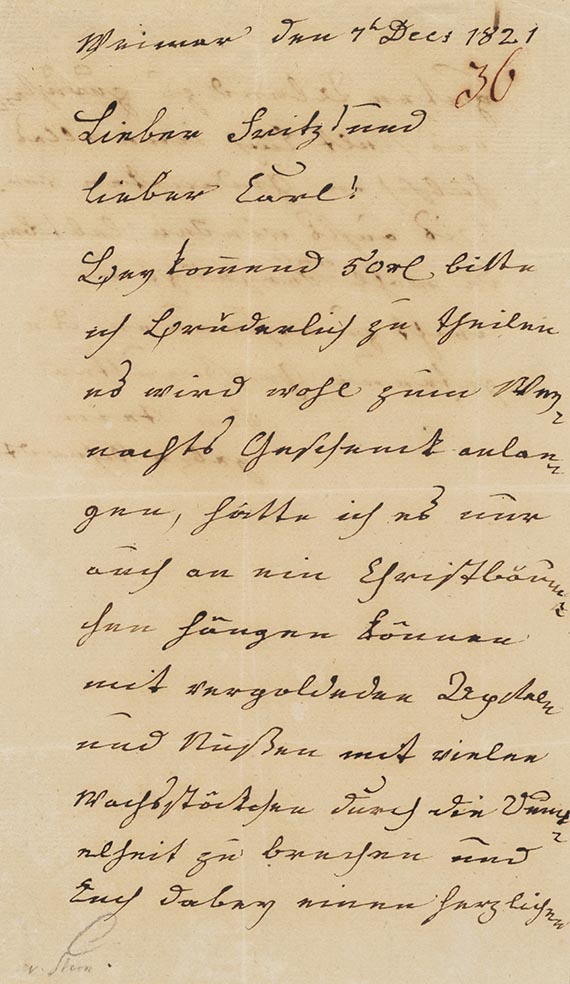 Weimar den 7t Decr 1821
36
Lieber Fritz! und
lieber Carl!
Bey kommend 50 rl bitte
ich Brüderlich zu theilen
es wird wohl zum Wey=
nachts Geschenck anlan=
gen, hätte ich es nur
auch an ein Christbäum=
chen hängen können
mit vergoldeden Äpfeln
und Nüßen mit vielen
Wachsstöckchen durch die Dunk=
elheit zu brechen und
Euch dabey einen herzlichen
v. Stein.